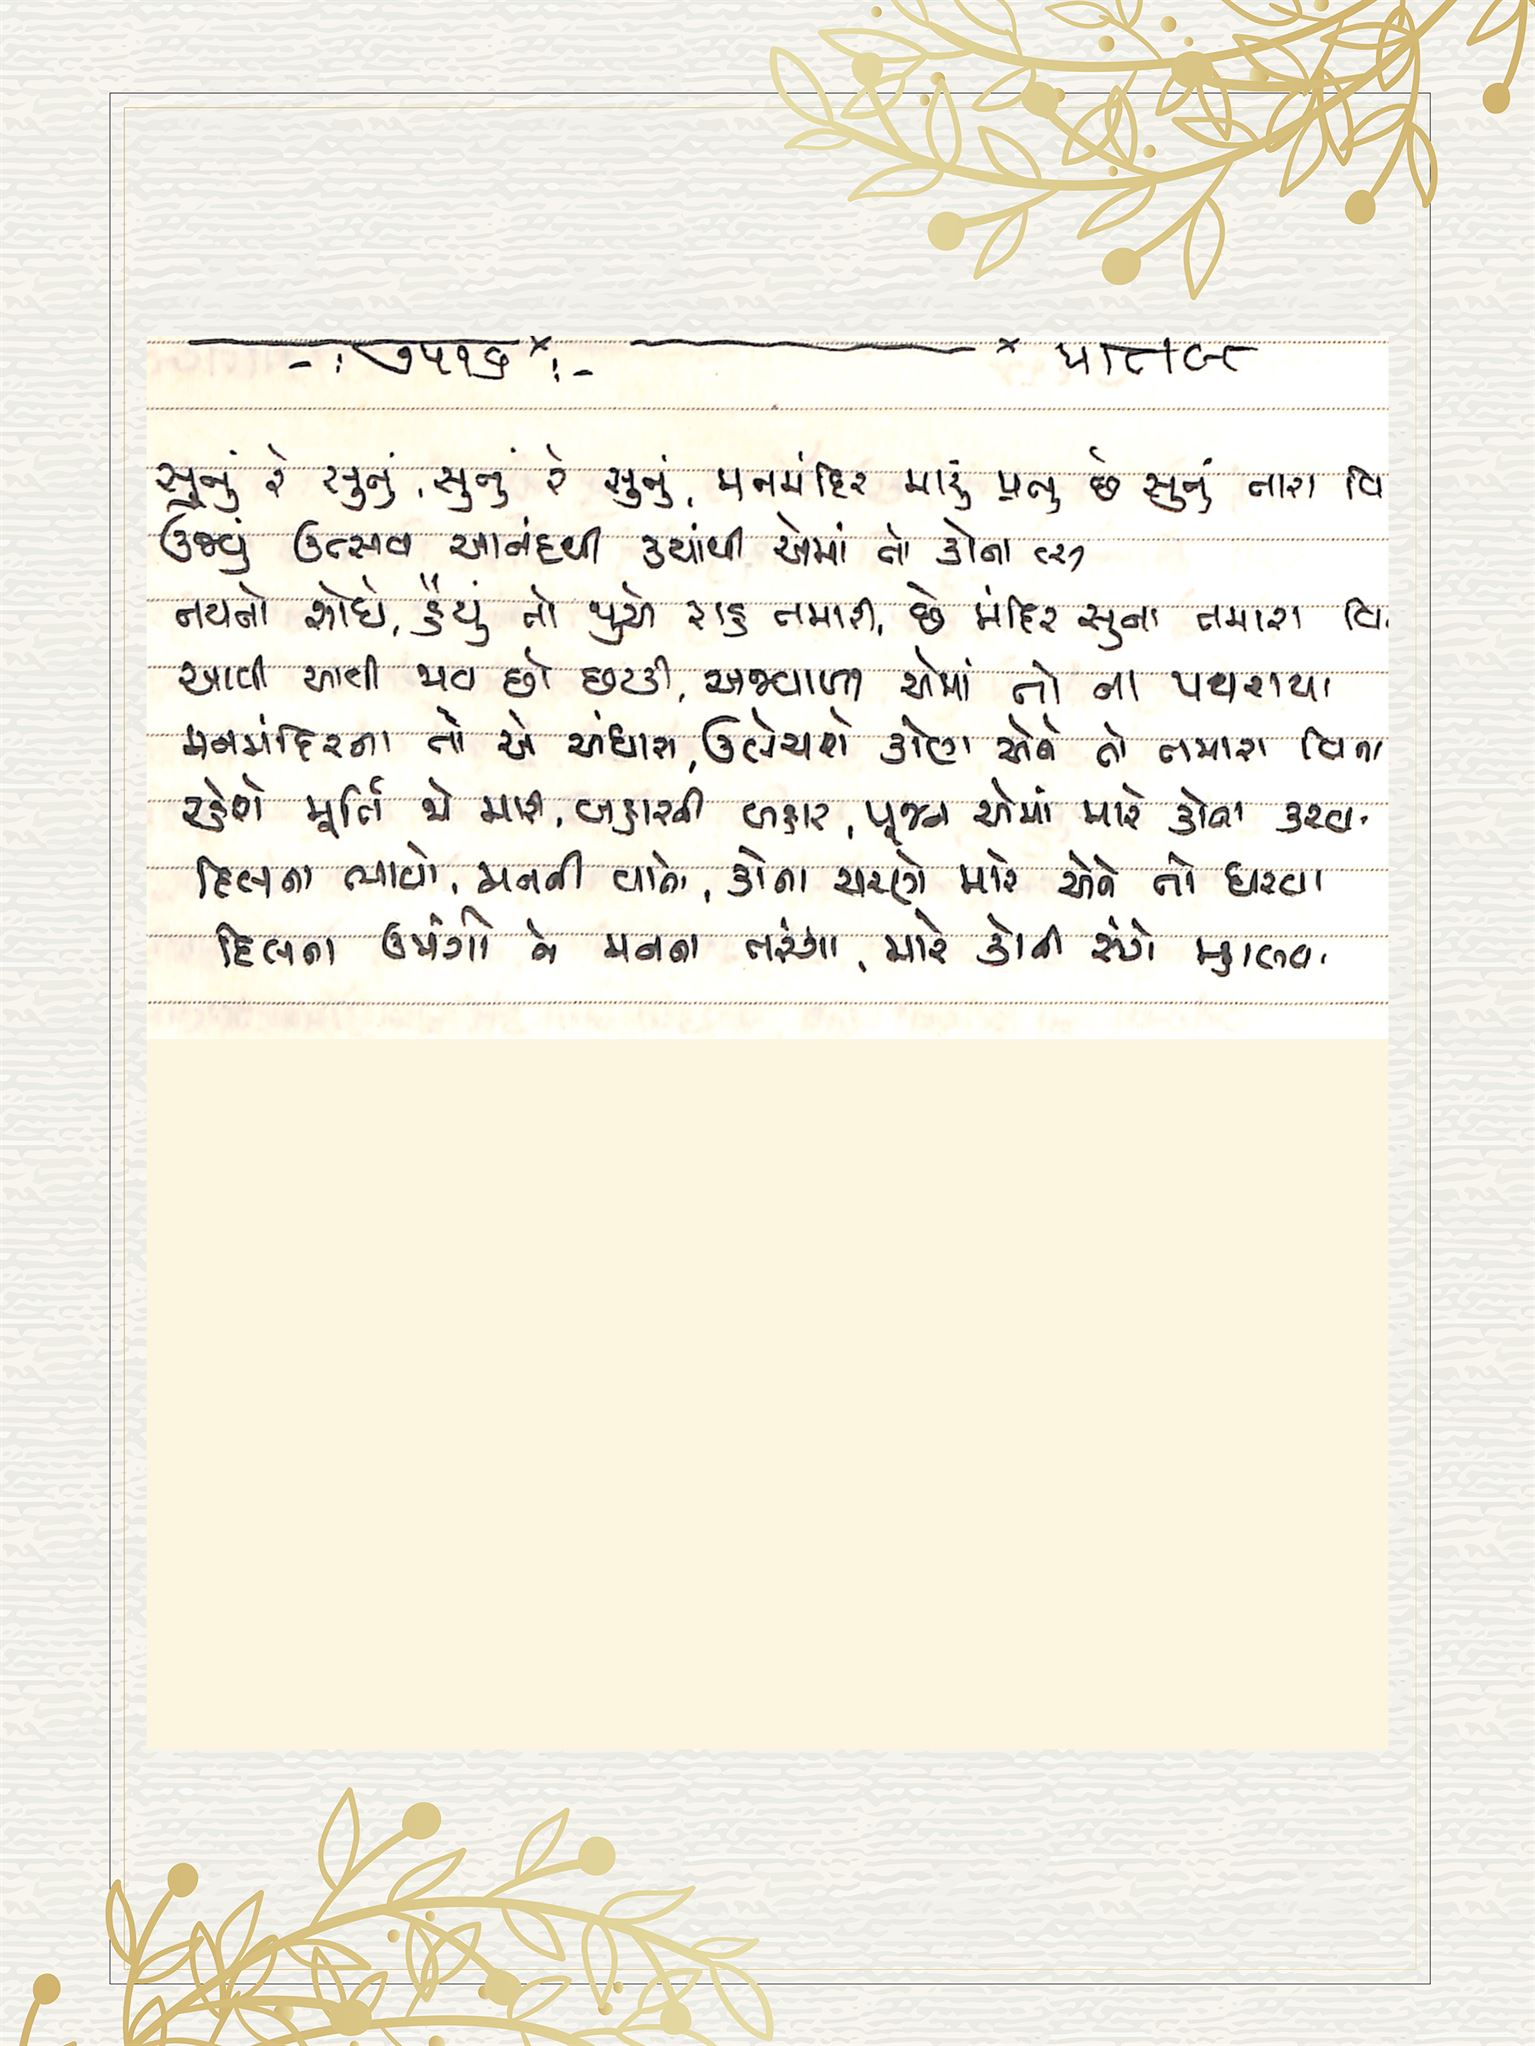 -: ૭૫૧૭ :-
સુનું રે સુનું, સુનું રે સુનું, મનમંદિર મારું પ્રભુ છે સુનું તારા વિ
ઉજવું ઉત્સવ આનંદથી ક્યાંથી એમાં તો કોના
નયનો શોધે, હૈયું તો જુએ રાહ તમારી, છે મંદિર સુના તમારા વિ
આવી આવી ભવ છો છટકી, અજવાળા એમાં તો ના પથરાયા
મનમંદિરના તો એ અંધારા, ઉલેચશે કોણ એને તો તમારા વિના
રહેશે મૂર્તિ જો મારી, બહારની બહાર, પૂજન એમાં મારે કોના કરવા
દિલના ભાવો, મનની વાતો, કોના ચરણે મારે એને તો ધરવા
દિલના ઉમંગો ને મનના તરંગો, મારે કોની સંગે મ્હાલવા